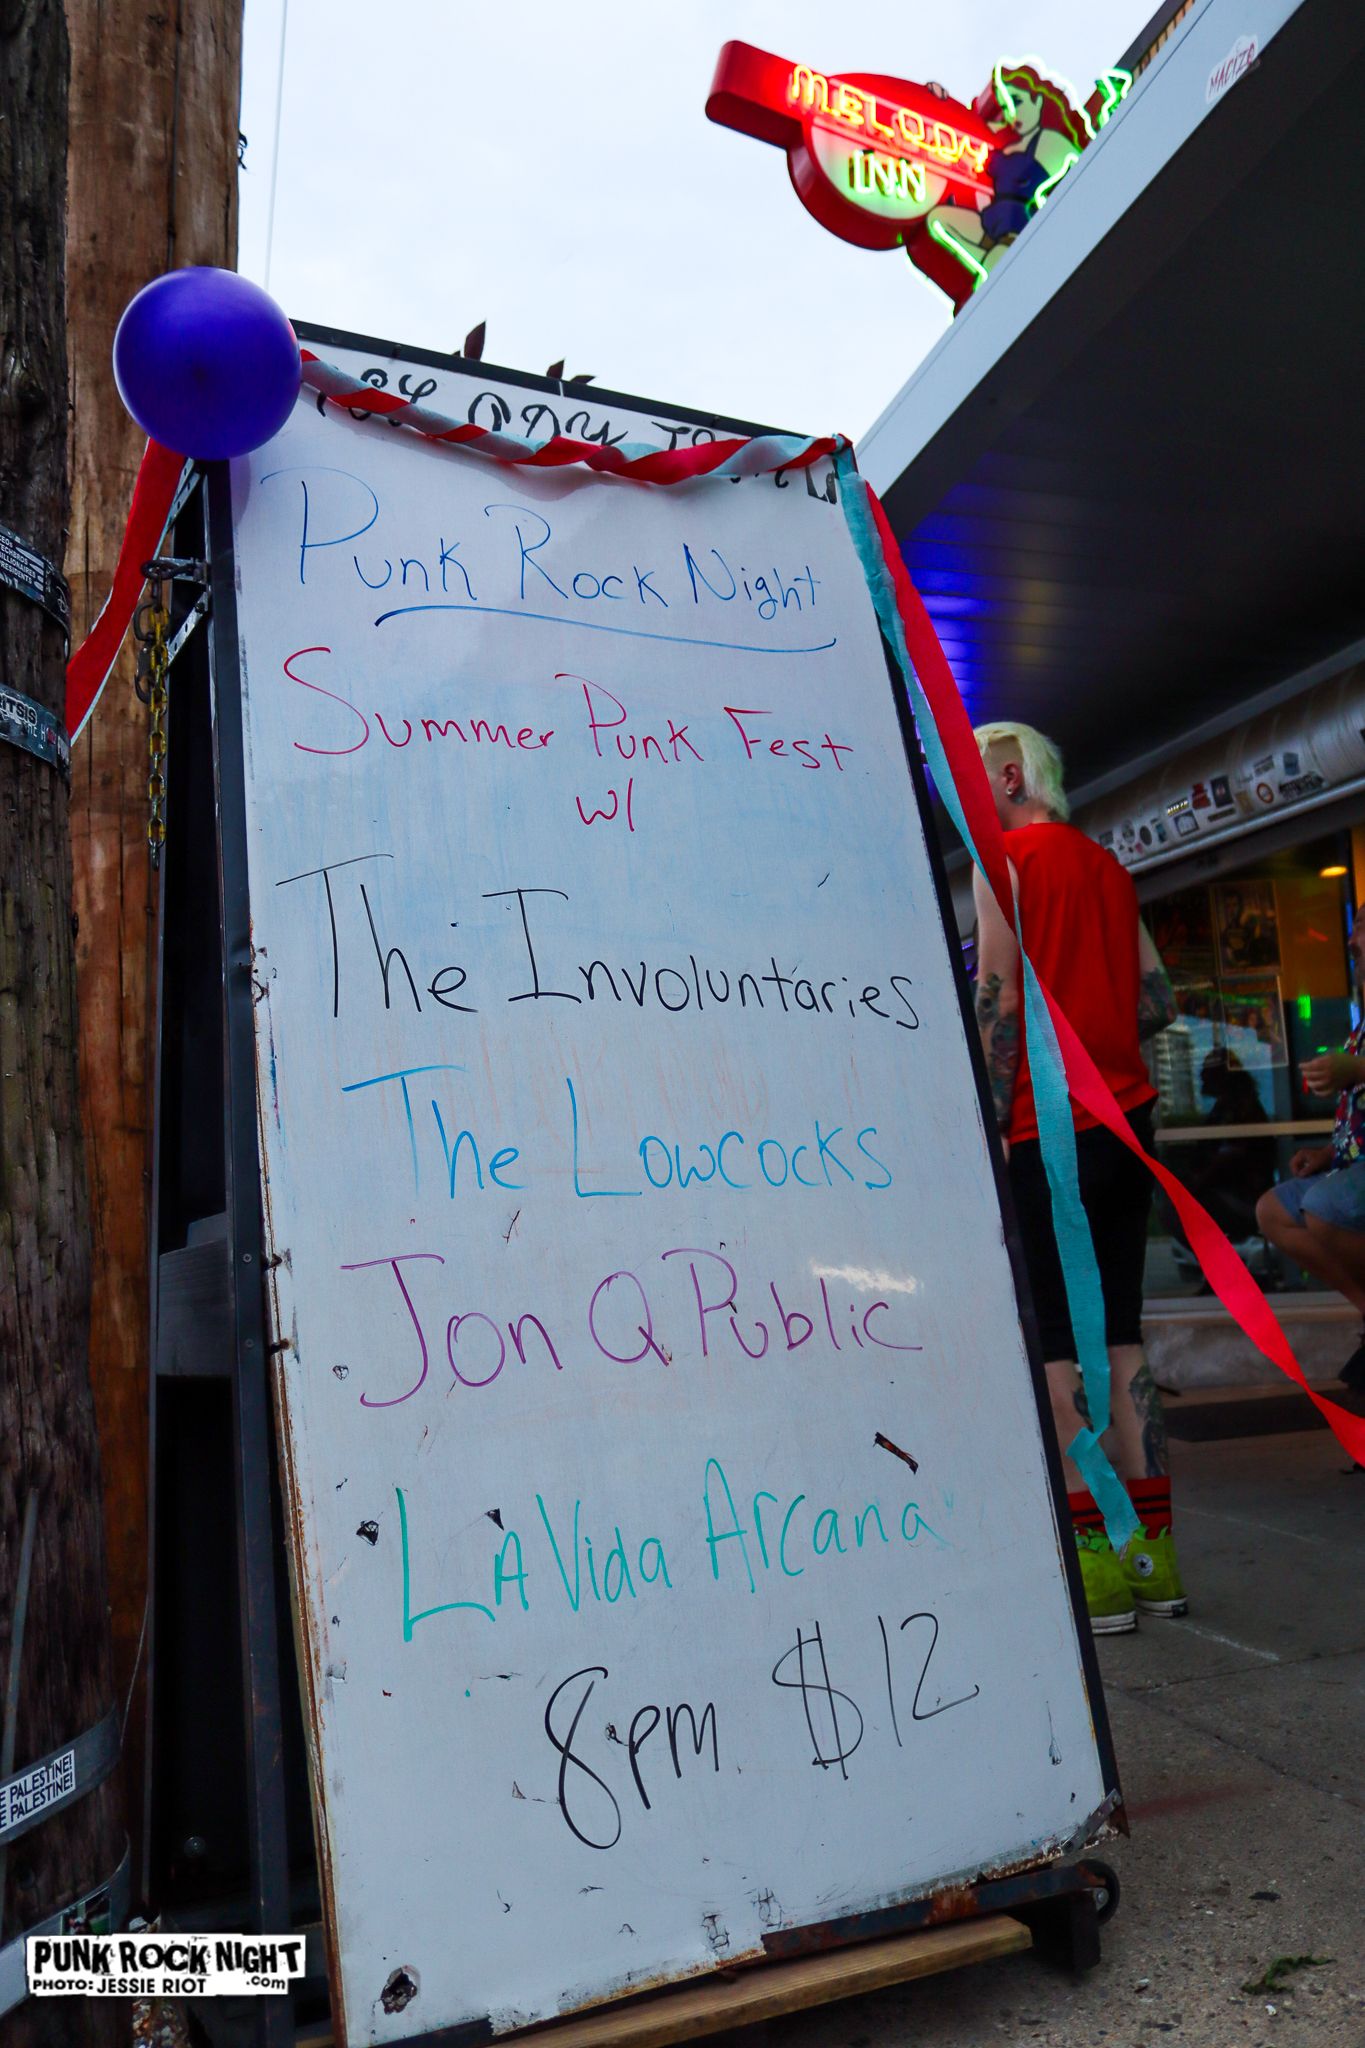 MELODY
INN
MACIZO
Punk Rock Night
Summer Punk Fest
w/
The Involuntaries
The Lowcocks
Jon Q Public
LA Vida Arcana
8pm $12
PALESTINE!
PALESTINE!
PUNK ROCK NIGHT
.com
PHOTO: JESSIE RIOT